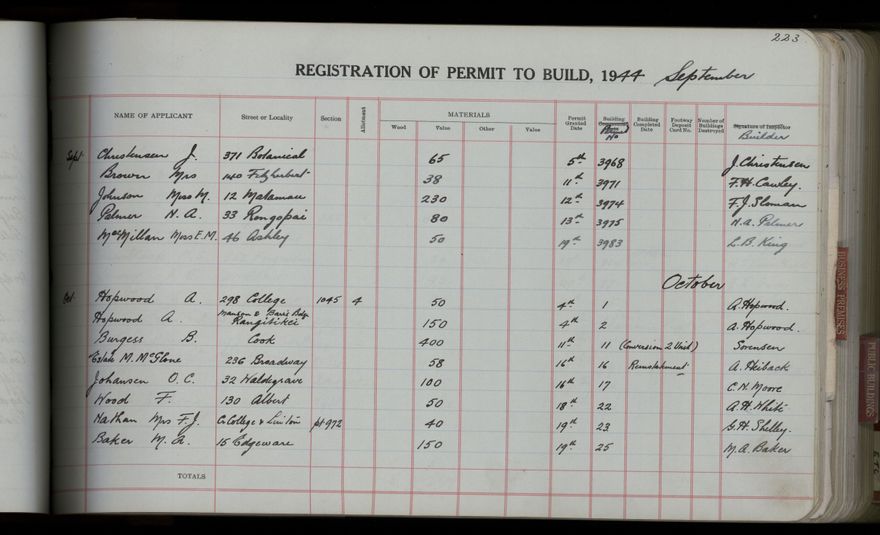 223
REGISTRATION OF PERMIT TO BUILD, 1944 September
NAME OF APPLICANT Street or Locality Section Allotment MATERIALS Permit Granted Date Building Permit No Building Completed Date Footway Deposit Card No. Number of Buildings Destroyed Signature of Inspector Builder
Wood Value Other Value
Sept Christensen J. 371 Botanical 65 5th 3968 J. Christensen
Brown Mrs 140 Fitzherbert 38 11th 3971 F.H. Cawley.
Johnson Miss M. 12 Matamau 230 12th 3974 F.J. Sloman
Palmer N.A. 33 Rongopai 80 13th 3975 N.A. Palmer
McMillan Miss E.M. 46 Ashley 50 19th 3983 L.B. King
October
Oct Hopwood A. 298 College 1045 4 50 4th 1 A. Hopwood.
Hopwood A. Manson & Barr's Bdgs Rangitikei 150 4th 2 A. Hopwood.
Burgess B. Cook 400 11th 11 (Conversion 2 Units) Sorensen
Estate M. McGlone 236 Broadway 58 16th 16 Reinstatement A. Heiback
Johansen O.C. 32 Waldegrave 100 16th 17 C.N. Moore
Wood F. 130 Albert 50 18th 22 A.H. White
Nathan Mrs F.J. C. College & Linton pt 972 40 19th 23 G.H. Shelley.
Baker M.A. 15 Edgeware 150 19th 25 M.A. Baker
TOTALS
BUSINESS PREMISES
PUBLIC BUILDINGS